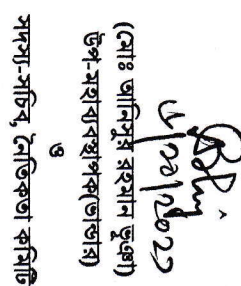 (মোঃ আনিসুর রহমান ভুঞা)
উপ-মহাব্যবস্থাপক(ভান্ডার)
ও
সদস্য-সচিব, নৈতিকতা কমিটি